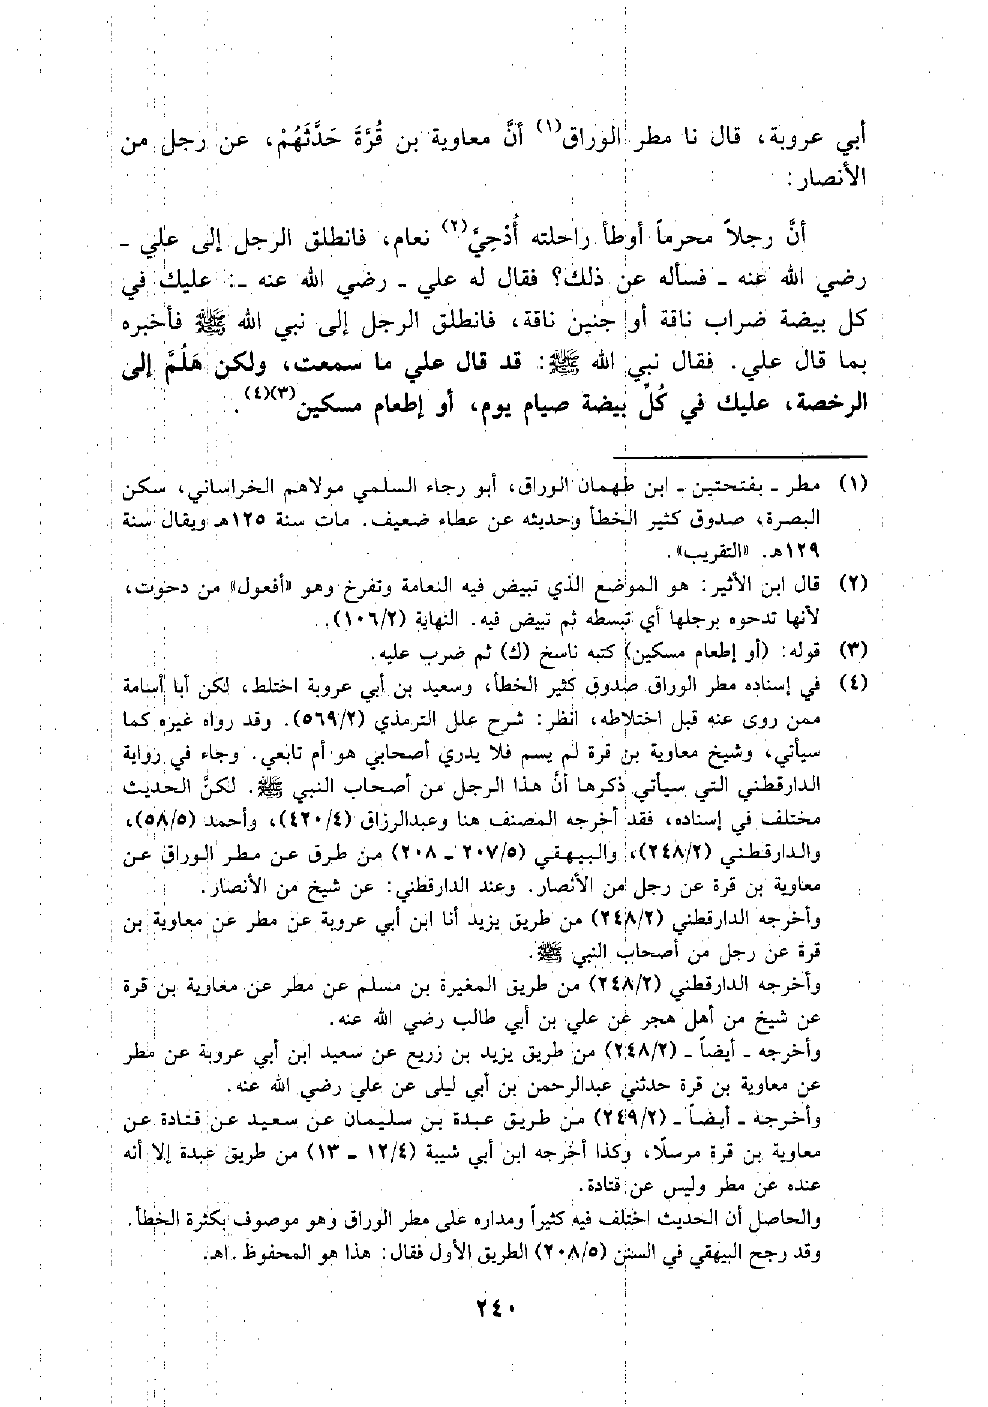 أبي عروبة، قال نا مطر الوراق(١) أنَّ معاوية بن قُرَّةَ حَدَّثَهُمْ، عن رجل من
الأنصار:
أنَّ رجلاً محرماً أوطأ راحلته أُدْحِيَّ(٢) نعام، فانطلق الرجل إلى علي ـ
رضي الله عنه ـ فسأله عن ذلك؟ فقال له علي ـ رضي الله عنه ـ: عليك في
كل بيضة ضراب ناقة أو جنين ناقة، فانطلق الرجل إلى نبي الله ﷺ فأخبره
بما قال علي. فقال نبي الله ﷺ: قد قال علي ما سمعت، ولكن هَلُمَّ إلى
الرخصة، عليك في كُلِّ بيضة صيام يوم، أو إطعام مسكين(٣)(٤).
(١) مطر ـ بفتحتين ـ ابن طهمان الوراق، أبو رجاء السلمي مولاهم الخراساني، سكن
البصرة، صدوق كثير الخطأ وحديثه عن عطاء ضعيف. مات سنة ١٢٥هـ ويقال سنة
١٢٩هـ. «التقريب».
(٢) قال ابن الأثير: هو الموضع الذي تبيض فيه النعامة وتفرخ وهو «أفعول» من دحوت،
لأنها تدحوه برجلها أي تبسطه ثم تبيض فيه. النهاية (١٠٦/٢).
(٣) قوله: (أو إطعام مسكين) كتبه ناسخ (ك) ثم ضرب عليه.
(٤) في إسناده مطر الوراق صدوق كثير الخطأ، وسعيد بن أبي عروبة اختلط، لكن أبا أسامة
ممن روى عنه قبل اختلاطه، انظر: شرح علل الترمذي (٥٦٩/٢). وقد رواه غيره كما
سيأتي، وشيخ معاوية بن قرة لم يسم فلا يدري أصحابي هو أم تابعي. وجاء في رواية
الدارقطني التي سيأتي ذكرها أنَّ هذا الرجل من أصحاب النبي ﷺ. لكنَّ الحديث
مختلف في إسناده، فقد أخرجه المصنف هنا وعبدالرزاق (٤٢٠/٤)، وأحمد (٥٨/٥)،
والدارقطني (٢٤٨/٢)، والبيهقي (٢٠٧/٥ ـ ٢٠٨) من طرق عن مطر الوراق عن
معاوية بن قرة عن رجل من الأنصار. وعند الدارقطني: عن شيخ من الأنصار.
وأخرجه الدارقطني (٢٤٨/٢) من طريق يزيد أنا ابن أبي عروبة عن مطر عن معاوية بن
قرة عن رجل من أصحاب النبي ﷺ.
وأخرجه الدارقطني (٢٤٨/٢) من طريق المغيرة بن مسلم عن مطر عن معاوية بن قرة
عن شيخ من أهل هجر عن علي بن أبي طالب رضي الله عنه.
وأخرجه ـ أيضاً ـ (٢٤٨/٢) من طريق يزيد بن زريع عن سعيد ابن أبي عروبة عن مطر
عن معاوية بن قرة حدثني عبدالرحمن بن أبي ليلى عن علي رضي الله عنه.
وأخرجه ـ أيضاً ـ (٢٤٩/٢) من طريق عبدة بن سليمان عن سعيد عن قتادة عن
معاوية بن قرة مرسلًا، وكذا أخرجه ابن أبي شيبة (١٢/٤ ـ ١٣) من طريق عبدة إلا أنه
عنده عن مطر وليس عن قتادة.
والحاصل أن الحديث اختلف فيه كثيراً ومداره على مطر الوراق وهو موصوف بكثرة الخطأ.
وقد رجح البيهقي في السنن (٢٠٨/٥) الطريق الأول فقال: هذا هو المحفوظ .اهـ.
٢٤٠